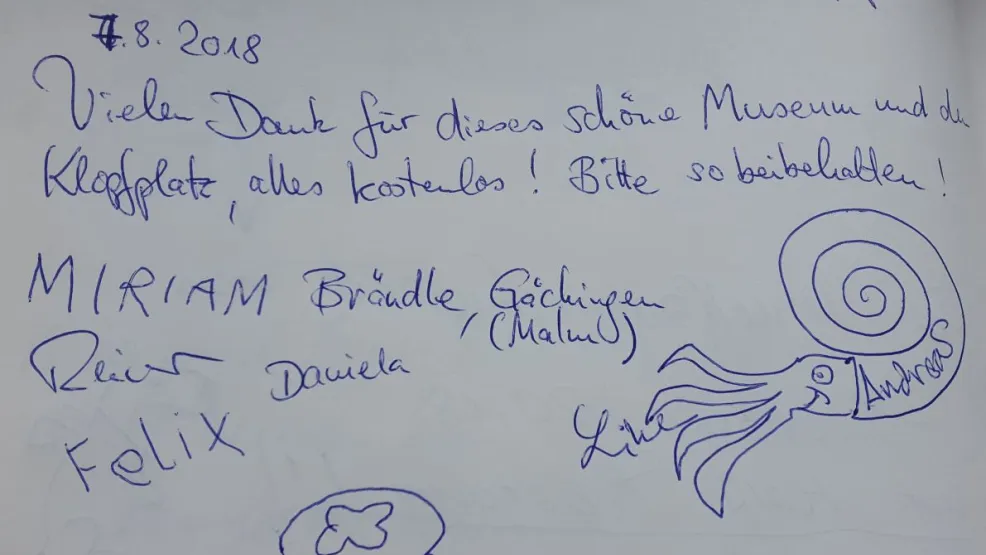 7.8. 2018
Vielen Dank für dieses schöne Museum und den
Klopfplatz, alles kostenlos! Bitte so beibehalten!
MIRIAM Brändle, Gächingen
(Malm)
Daniela
Felix
Andreas